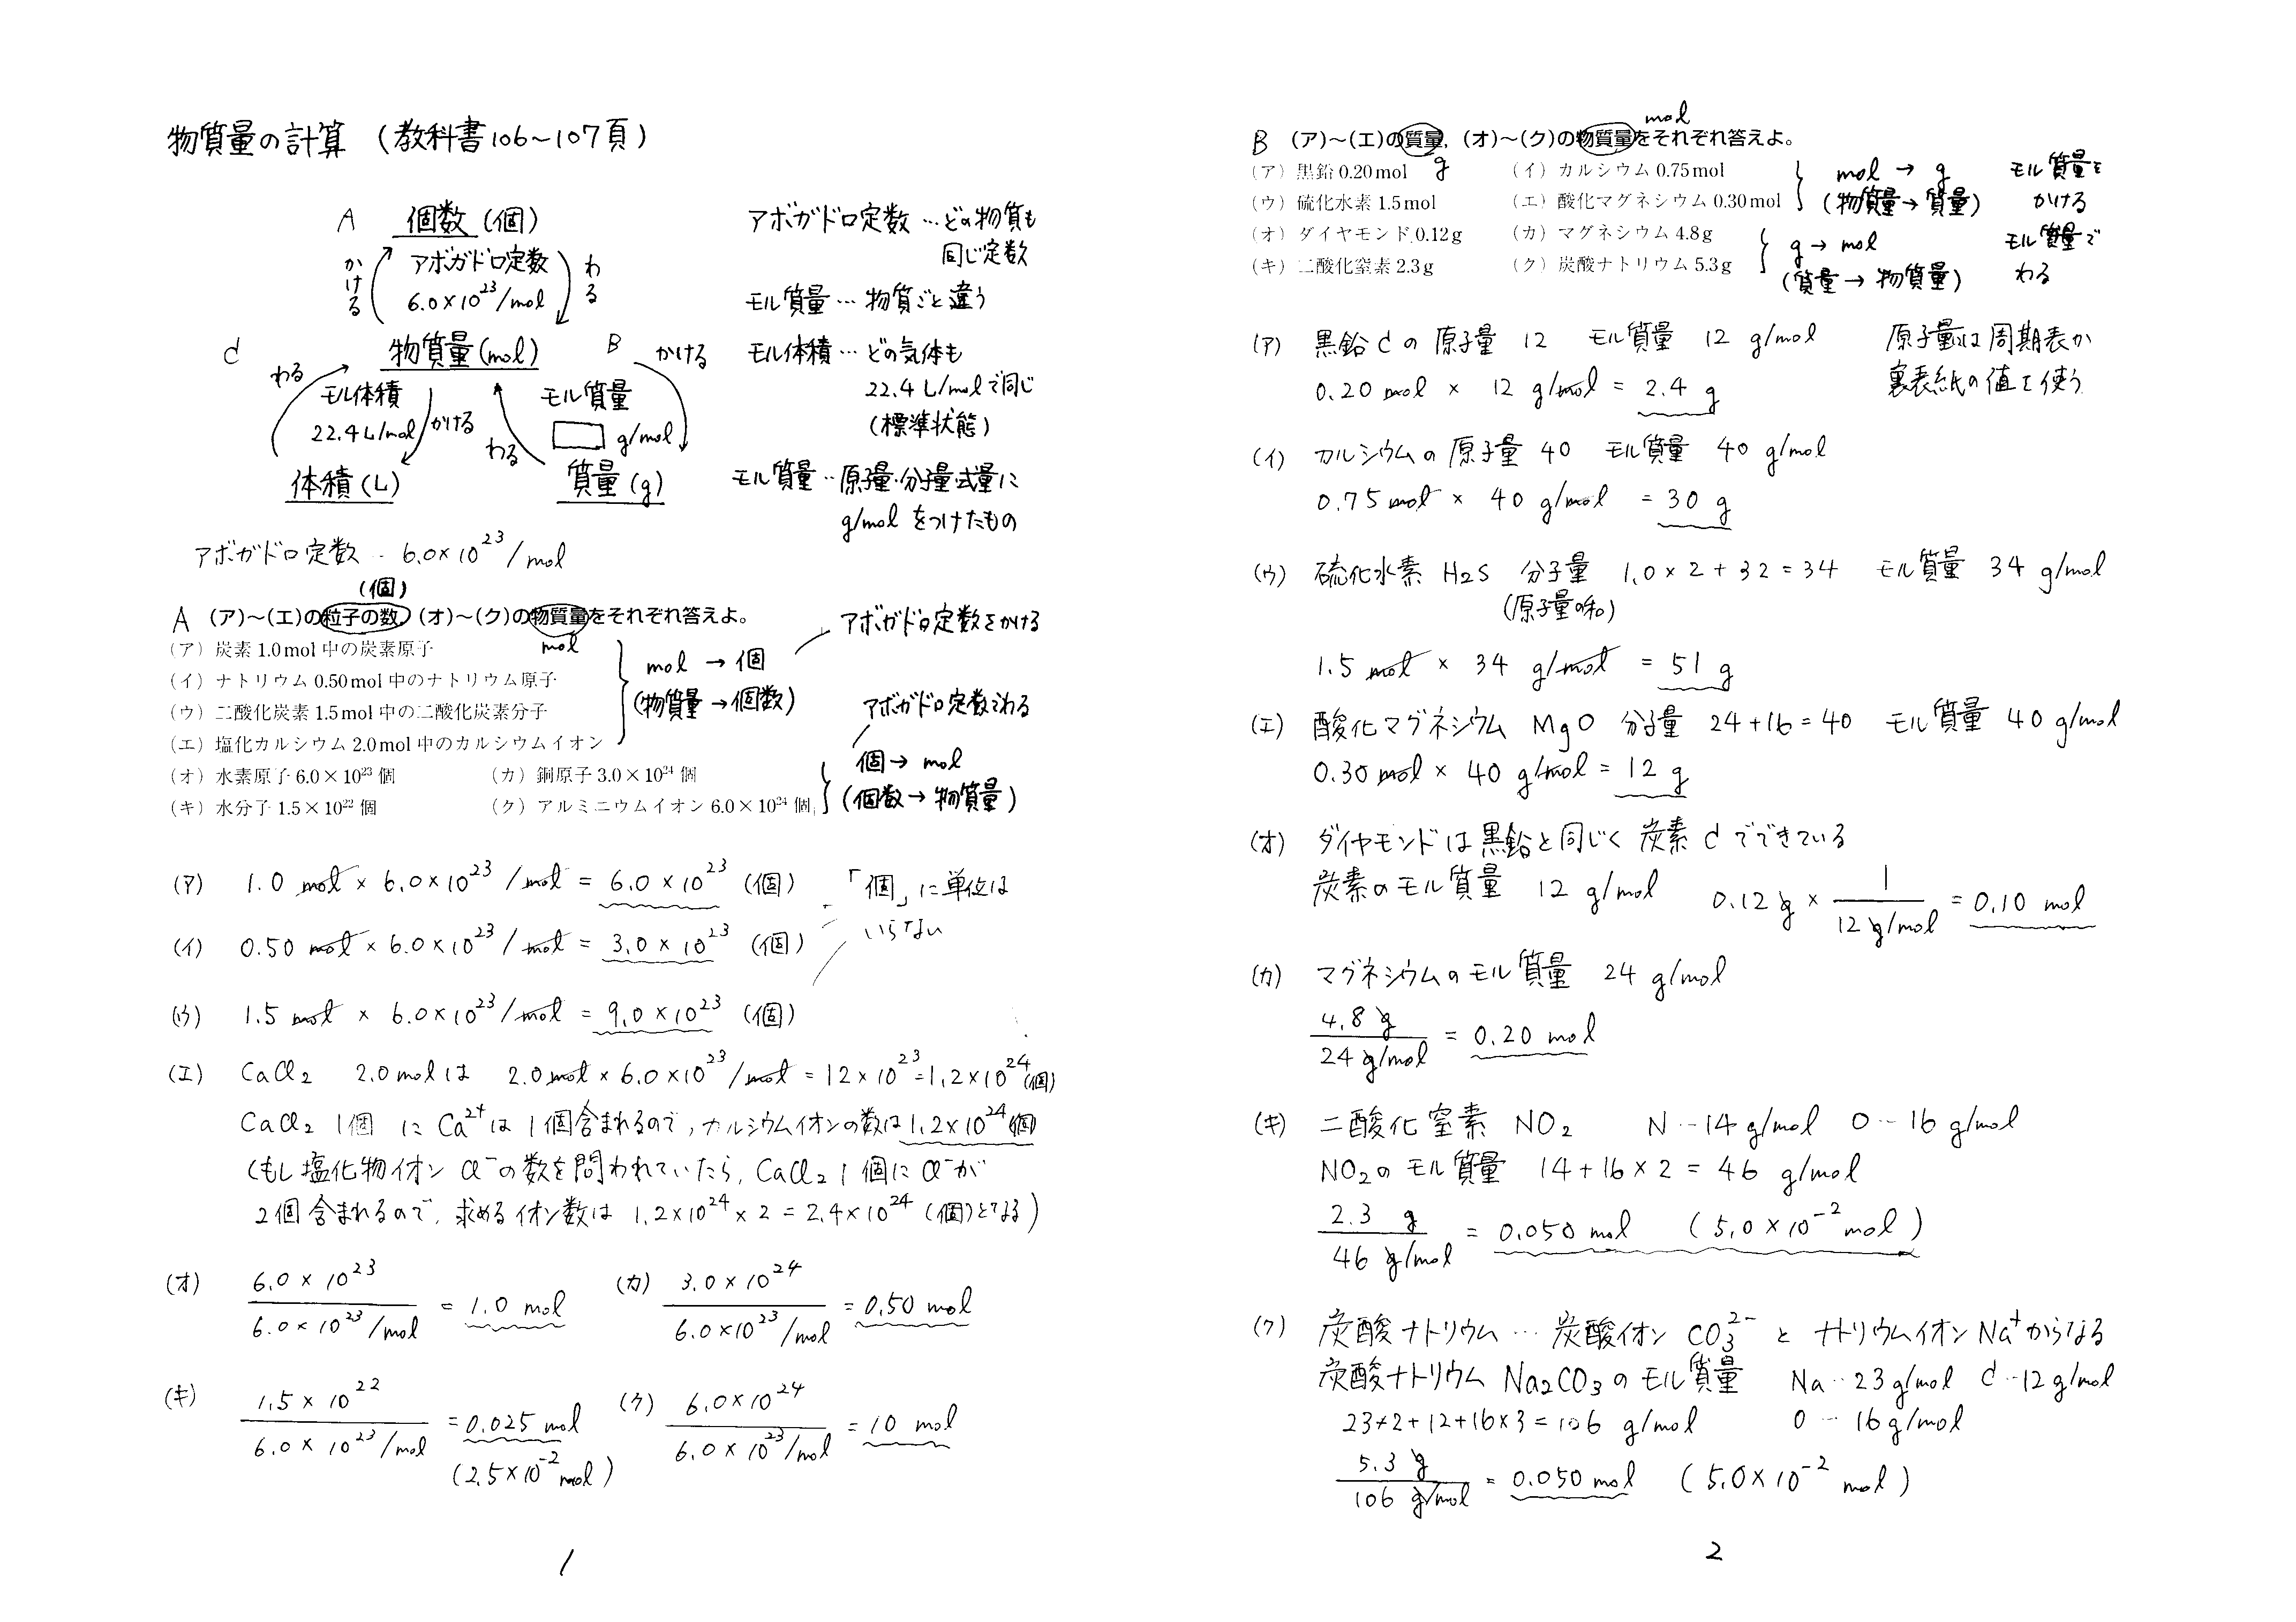 物質量の計算 (教科書106~107頁)
A 個数(個)
かける
アボガドロ定数
6.0×10²³/mol
わる
C 物質量(mol) B
わる
モル体積
22.4L/mol
かける
わる
モル質量
□ g/mol
かける
体積(L) 質量(g)
アボガドロ定数…どの物質も
同じ定数
モル質量…物質ごと違う
モル体積…どの気体も
22.4L/molで同じ
(標準状態)
モル質量‥原子量・分子量・式量に
g/molをつけたもの
アボガドロ定数‥6.0×10²³/mol
(個)
A (ア)~(エ)の粒子の数,(オ)~(ク)の物質量をそれぞれ答えよ。
mol
(ア) 炭素1.0mol中の炭素原子
(イ) ナトリウム0.50mol中のナトリウム原子
(ウ) 二酸化炭素1.5mol中の二酸化炭素分子
(エ) 塩化カルシウム2.0mol中のカルシウムイオン
(オ) 水素原子6.0×10²³個 (カ) 銅原子3.0×10²⁴個
(キ) 水分子1.5×10²²個 (ク) アルミニウムイオン6.0×10²⁴個
アボガドロ定数をかける
mol → 個
(物質量→個数)
アボガドロ定数でわる
個→ mol
(個数→物質量)
(ア) 1.0 mol × 6.0×10²³ /mol = 6.0×10²³ (個)
(イ) 0.50 mol × 6.0×10²³/mol = 3.0×10²³ (個)
(ウ) 1.5 mol × 6.0×10²³/mol = 9.0×10²³ (個)
「個」に単位は
いらない
(エ) CaCl₂ 2.0molは 2.0mol×6.0×10²³/mol=12×10²³=1.2×10²⁴(個)
CaCl₂ 1個 に Ca²⁺は1個含まれるので,カルシウムイオンの数は1.2×10²⁴(個)
(もし塩化物イオン Cl⁻の数を問われていたら,CaCl₂ 1個にCl⁻が
2個含まれるので,求めるイオン数は 1.2×10²⁴×2=2.4×10²⁴(個)となる)
(オ) 6.0×10²³ / 6.0×10²³/mol = 1.0 mol (カ) 3.0×10²⁴ / 6.0×10²³/mol = 0.50 mol
(キ) 1.5×10²² / 6.0×10²³/mol = 0.025 mol (ク) 6.0×10²⁴ / 6.0×10²³/mol = 10 mol
(2.5×10⁻² mol)
1
mol
B (ア)~(エ)の質量,(オ)~(ク)の物質量をそれぞれ答えよ。
g
(ア) 黒鉛0.20mol (イ) カルシウム0.75mol
(ウ) 硫化水素1.5mol (エ) 酸化マグネシウム0.30mol
(オ) ダイヤモンド0.12g (カ) マグネシウム4.8g
(キ) 二酸化窒素2.3g (ク) 炭酸ナトリウム5.3g
mol → g モル質量を
(物質量→質量) かける
g→ mol モル質量で
(質量→物質量) わる
(ア) 黒鉛Cの原子量 12 モル質量 12 g/mol
0.20 mol × 12 g/mol = 2.4 g
原子量は周期表か
裏表紙の値を使う
(イ) カルシウムの原子量 40 モル質量 40 g/mol
0.75mol × 40 g/mol = 30 g
(ウ) 硫化水素 H₂S 分子量 1.0×2+32=34 モル質量 34 g/mol
(原子量の和)
1.5 mol × 34 g/mol = 51 g
(エ) 酸化マグネシウム MgO 分子量 24+16=40 モル質量 40 g/mol
0.30 mol × 40 g/mol = 12 g
(オ) ダイヤモンドは黒鉛と同じく炭素Cでできている
炭素のモル質量 12 g/mol 0.12g × 1 / 12 g/mol = 0.10 mol
(カ) マグネシウムのモル質量 24 g/mol
4.8 g / 24 g/mol = 0.20 mol
(キ) 二酸化窒素 NO₂ N‥14 g/mol O‥16 g/mol
NO₂のモル質量 14+16×2=46 g/mol
2.3 g / 46 g/mol = 0.050 mol (5.0×10⁻² mol)
(ク) 炭酸ナトリウム…炭酸イオン CO₃²⁻ と ナトリウムイオンNa⁺からなる
炭酸ナトリウム Na₂CO₃のモル質量 Na‥23g/mol C‥12g/mol
23×2+12+16×3=106 g/mol O‥16g/mol
5.3 g / 106 g/mol = 0.050 mol (5.0×10⁻² mol)
2